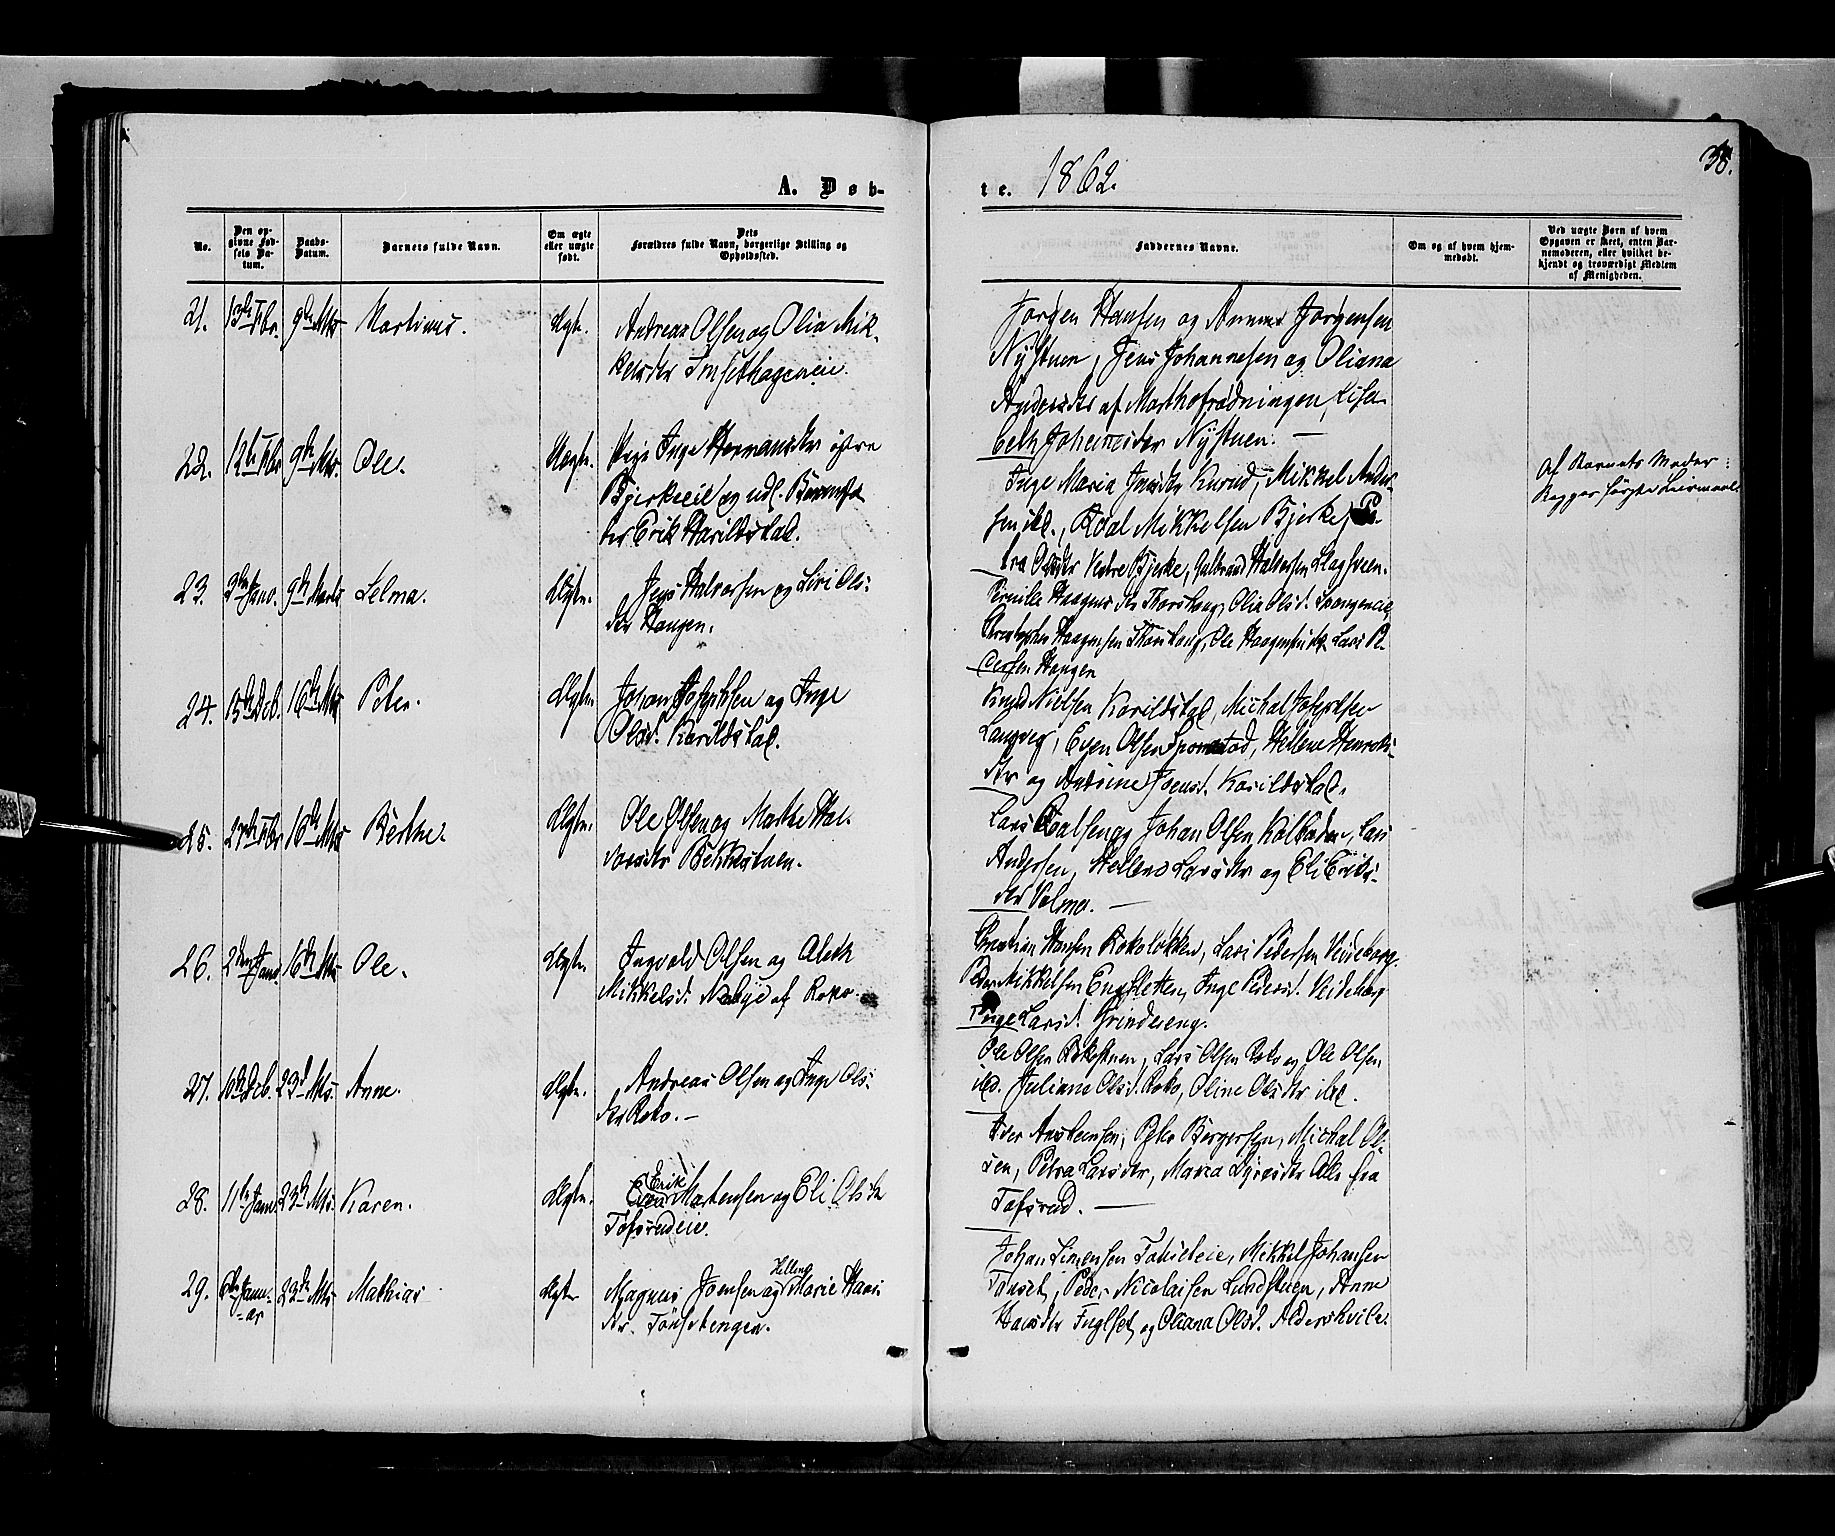 A. Døb-
te. 1862.
38.
No.
Den op-
givne Fød-
sels Da-
tum.
Daabs-
Datum.
Barnets fulde Navn.
Om ægte
eller uægte
født.
Dets
Forældres fulde Navn, borgerlige Stilling og
Opholdssted.
Faddernes Navne.
Om og af hvem hjem-
medøbt.
Ved uægte Børn af hvem
Opgaven er skeet, enten Bar-
nemoderen, eller hvilket be-
kjendt og troværdigt Medlem
af Menigheden.
21. 13de Fbr. 9de Mts Martinus. Ægte.
Andreas Olsen og Olia Mik-
kelsdtr Imsethageneie.
Jørgen Hansen og Anne Jørgensen
Nystuen, Jens Johannesen og Oliana
Andersdtr af Marthofrødningen, Lisa-
beth Johannesdtr Nystuen. —
22. 12te Fbr 9de Mts. Ole. Uægte.
Pige Inge Hermansdtr øvre
Bjerkeeie og udl. Barnefa-
der Erik Karildstad.
Inge Maria Jensdtr Kurud, Mikkel Ander-
sen ibd., Roal Mikkelsen Bjerke, Pe-
tra Olsdtr Vestre Bjerke, Gulbrand Halvorsen Slagsveen.
Af Barnets Moder:
Begges første Leiermaal.
23. 3die Janv. 9de Marts Selma. Ægte.
Jens Halvorsen og Siri Ols-
dtr Haugen.
Pernille Haagensdtr Thorshaug, Olia Olsd. Spangeneie,
Christopher Haagensen Thorshaug, Ole Haagensen ibd. Lars Pe-
dersen Haugen
24. 15de Dcb. 16de Mts Peter. Ægte.
Johan Josephsen og Inge
Olsd. Karildstad.
Knud Nielsen Karildstad, Michal Josephsen
Langveg, Even Olsen Sponstad, Hellene Henriks-
dtr og Andrine Joensd. Karildstad.
25. 27de Fbr 16de Mts Berthe. Ægte.
Ole Olsen og Marthe Hal-
vorsdtr Bekkestuen.
Lars Roalsen og Johan Olsen Kolbaden, Lars
Andersen, Hellene Larsdtr og Eli Eriks-
dtr Valmo. —
26. 2den Janv. 16de Mts Ole. Ægte.
Ingvald Olsen og Aleth
Mikkelsd. Nabye af Roko.
Christian Hansen Rokoløkken, Lars Pedersen Veideborg.
Peder Mikkelsen Engsletten, Inge Pedersd. Veideborg
Inge Larsd. Grindereng.
27. 10de Dcb. 23d Mts. Anne. Ægte.
Andreas Olsen og Inge Ols-
dtr Roko. —
Ole Olsen Rokostuen, Lars Olsen Roko og Ole Olsen
ibd. Juliane Olsd. Roko, Oline Olsdtr ibd.
28. 11te Janv. 23de Mts. Karen. Ægte.
Erik
Even Martensen og Eli Olsdtr
Tofsrudeie.
Iver Amundsen, Peter Børgersen, Michal Ol-
sen, Petra Larsdtr, Maria Larsdtr Alle fra
Tofsrud. —
29. 6te Janu-
ar 23de Mts Mathias Ægte
Hellene
Magnus Joensen og Marie Hans
dtr. Tønsetengen.
Johan Simensen Tønseteie, Mikkel Johansen
Tønset, Peder Nicolaisen Lundstuen, Anne
Hansdtr Fuglset og Oliana Olsd. Alderskvile.